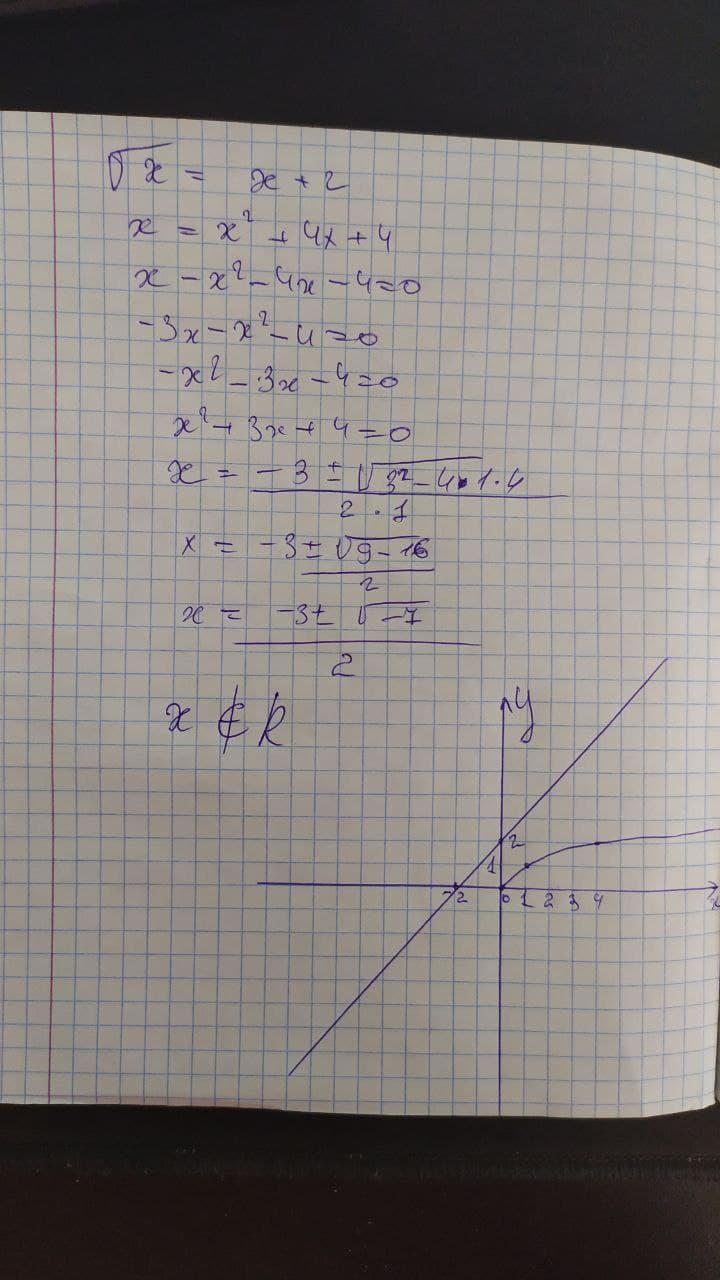 √x = x + 2
x = x² + 4x + 4
x - x² - 4x - 4 = 0
-3x - x² - 4 = 0
-x² - 3x - 4 = 0
x² + 3x + 4 = 0
x = -3 ± √3² - 4 · 1 · 4
2 · 1
x = -3 ± √9 - 16
2
x = -3 ± √-7
2
x ∉ R
y
2
1
-2 0 1 2 3 4 x